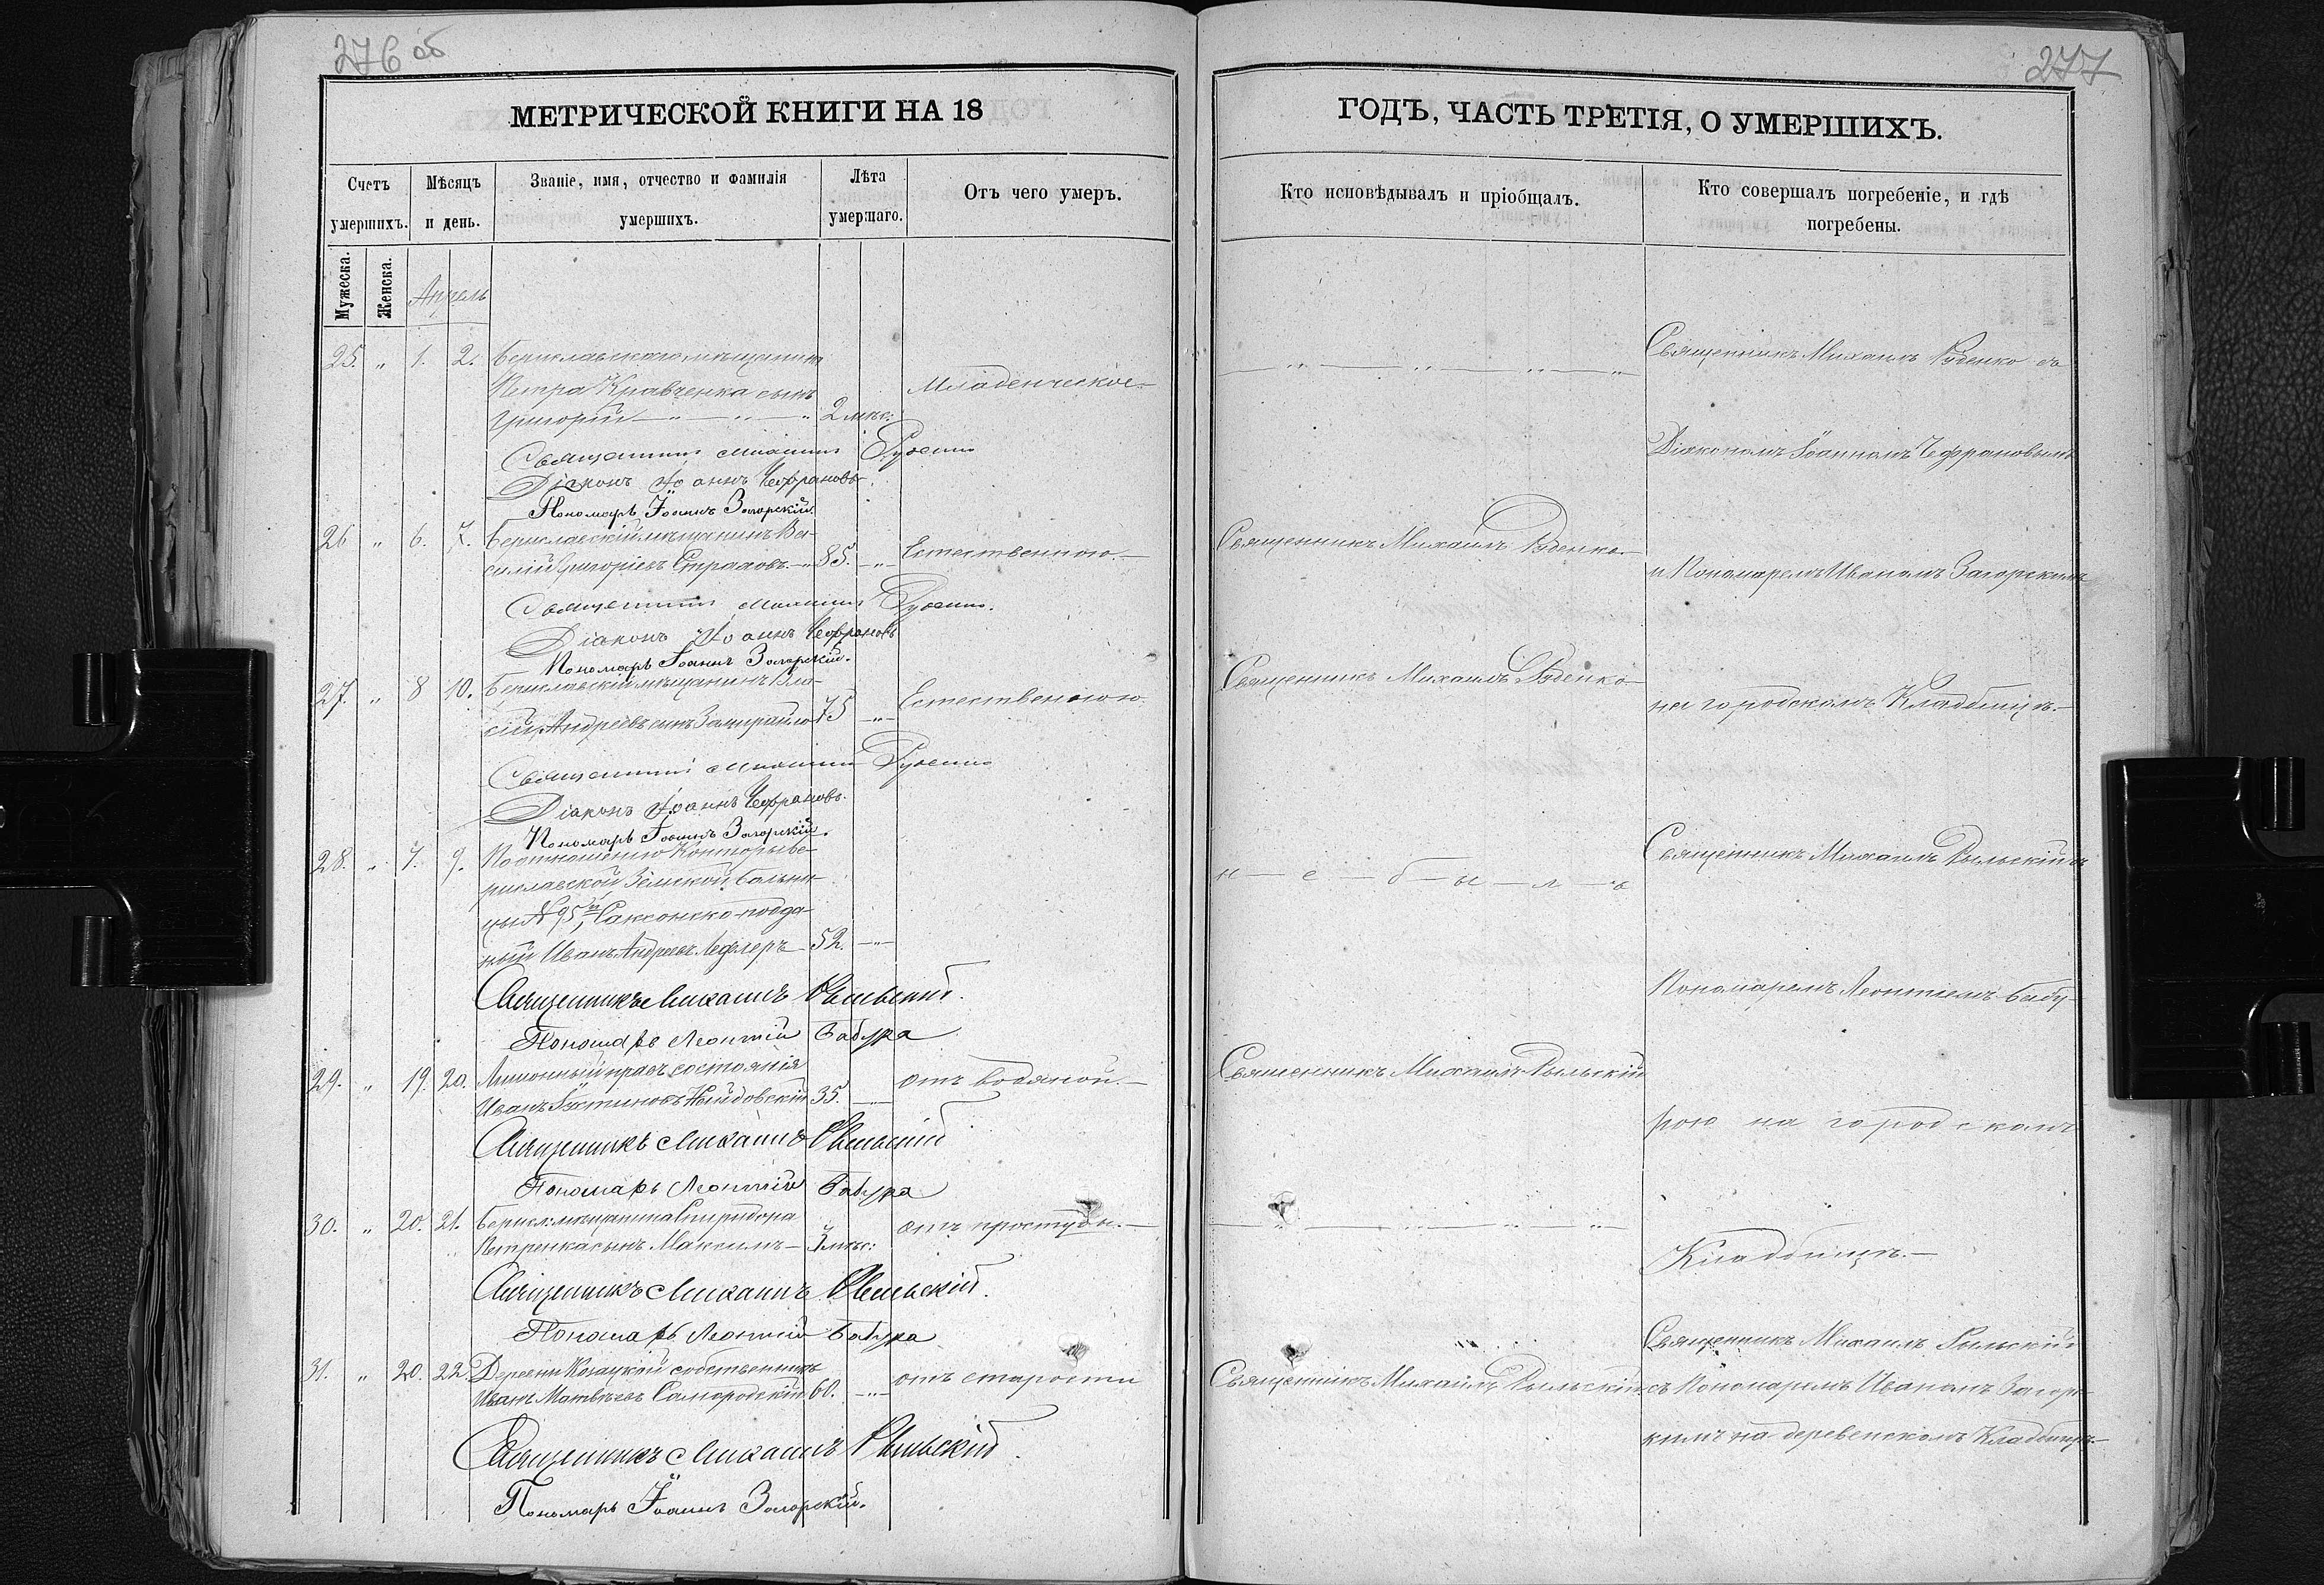 276 об
МЕТРИЧЕСКОЙ КНИГИ НА 18
Счетъ умершихъ.
Мѣсяцъ и день.
Званіе, имя, отчество и фамилія умершихъ.
Лѣта умершаго.
Отъ чего умеръ.
Мужеска.
Женска.
Апрель
25. " 1. 2. Бериславскаго мѣщанина
Петра Кравченка сынъ Младенческое
Григорій — " — " — " 2 мѣс:
Священникъ Михаилъ Руденко
Діаконъ Іоаннъ Чефрановъ.
Пономарь Іоаннъ Загорскій.
26 " 6. 7. Бериславскій мѣщанинъ Ва-
силій Григоріевъ Страховъ. — " 85. — " — Естественною. —
Священникъ Михаилъ Руденко.
Діаконъ Іоаннъ Чефрановъ
Пономарь Іоаннъ Загорскій.
27. " 8 10. Бериславскій мѣщанинъ Вла-
сій Андреевъ сынъ 75 — " — Естественною
Священникъ Михаилъ Руденко
Діаконъ Іоаннъ Чефрановъ.
Пономарь Іоаннъ Загорскій.
28. " 7. 9. По отношенію Конторы Бе-
риславской Земской больни-
цы № 95й, Саксонско-подда-
ный Иванъ Андреевъ Лефлеръ 52. — " —
Священникъ Михаилъ Рыльскій.
Пономарь Леонтій Бабура
29. " 19. 20. Лишонный правъ состоянія отъ водяной. —
Иванъ 35. — " —
Священникъ Михаилъ Рыльскій
Пономарь Леонтій Бабура
30. " 20. 21. Берисл: мѣщанина Спиридона отъ простуды. —
Петренка сынъ Максимъ — мѣс:
Священникъ Михаилъ Рыльскій.
Пономарь Леонтій Бабура
31. " 20. 22. Деревни Козацкой собственникъ отъ старости
Иванъ Матвѣевъ Самородскій 60. — " —
Священникъ Михаилъ Рыльскій.
Пономарь Іоаннъ Загорскій.
277
ГОДЪ, ЧАСТЬ ТРЕТІЯ, О УМЕРШИХЪ.
Кто исповѣдывалъ и пріобщалъ.
Кто совершалъ погребеніе, и гдѣ погребены.
— " — " — " — "
Священникъ Михаилъ Руденко съ
Діакономъ Іоанномъ Чефрановымъ
Священникъ Михаилъ Руденко. —
и Пономаремъ Иваномъ Загорскимъ
Священникъ Михаилъ Руденко —
на городскомъ Кладбищѣ. —
Священникъ Михаилъ Рыльскій съ
н — е — б — ы — л — ъ
Пономаремъ Леонтіемъ Бабу-
Священникъ Михаилъ Рыльскій
рою на городскомъ
— " — " — " — " —
Кладбищѣ. —
Священникъ Михаилъ Рыльскій
Священникъ Михаилъ Рыльскій съ Пономаремъ Иваномъ Загорс-
кимъ на деревенскомъ Кладбищѣ. —